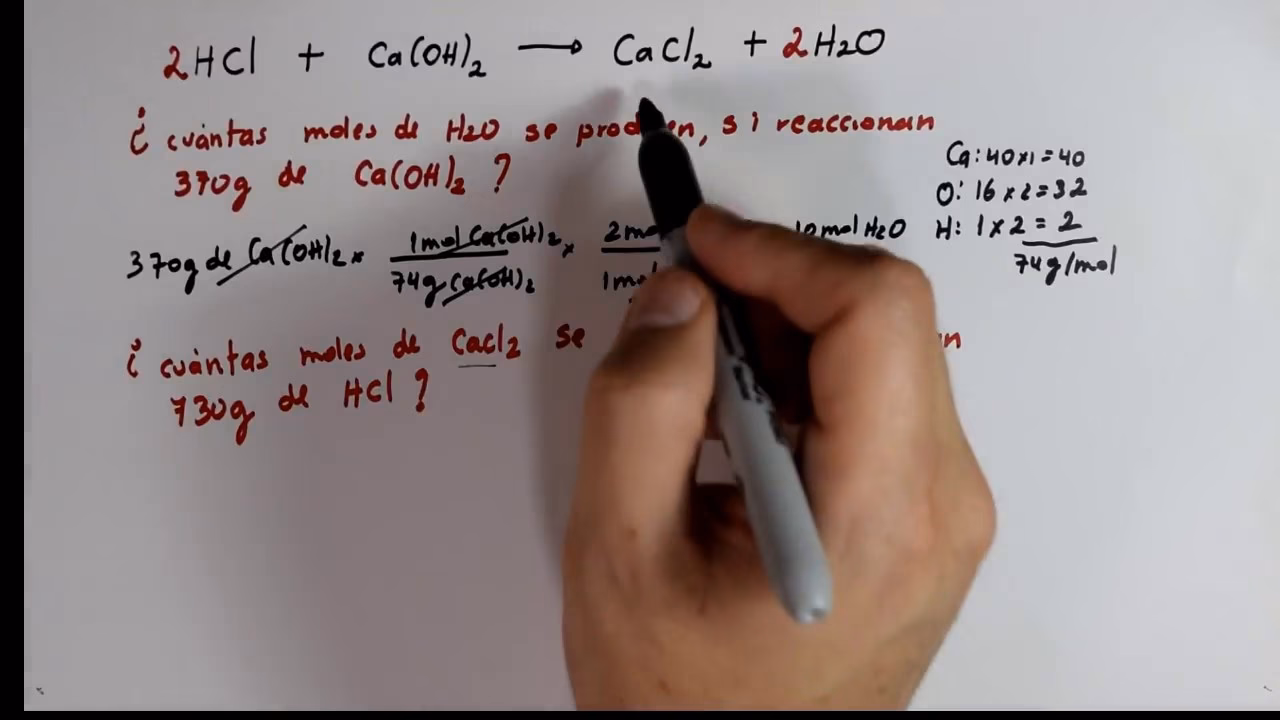 2HCl + Ca(OH)2 → CaCl2 + 2H2O
¿ cuántas moles de H2O se en, si reaccionan
370g de Ca(OH)2 ?
Ca: 40x1 = 40
O: 16 x 2 = 32
H: 1 x 2 = 2
74g/mol
370g de Ca(OH)2 x 1mol Ca(OH)2 x 2mo 10mol H2O
74g Ca(OH)2 1mo
¿ cuántas moles de CaCl2 se an
730g de HCl ?